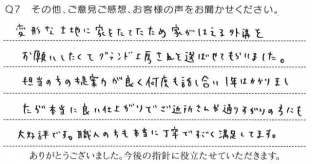 Q7 その他、ご意見ご感想、お客様の声をお聞かせください。
変形な土地に家をたてたため家がはえる外構を
お願いしたくてグランド工房さんを選ばせてもらいました。
担当の方の提案力が良く何度も話し合い1年はかかりまし
たが本当に良い仕上がりでご近所さんが通りすがりの方にも
大好評です。職人の方も本当に丁寧ですごく満足してます。
ありがとうございました。今後の指針に役立たせていただきます。